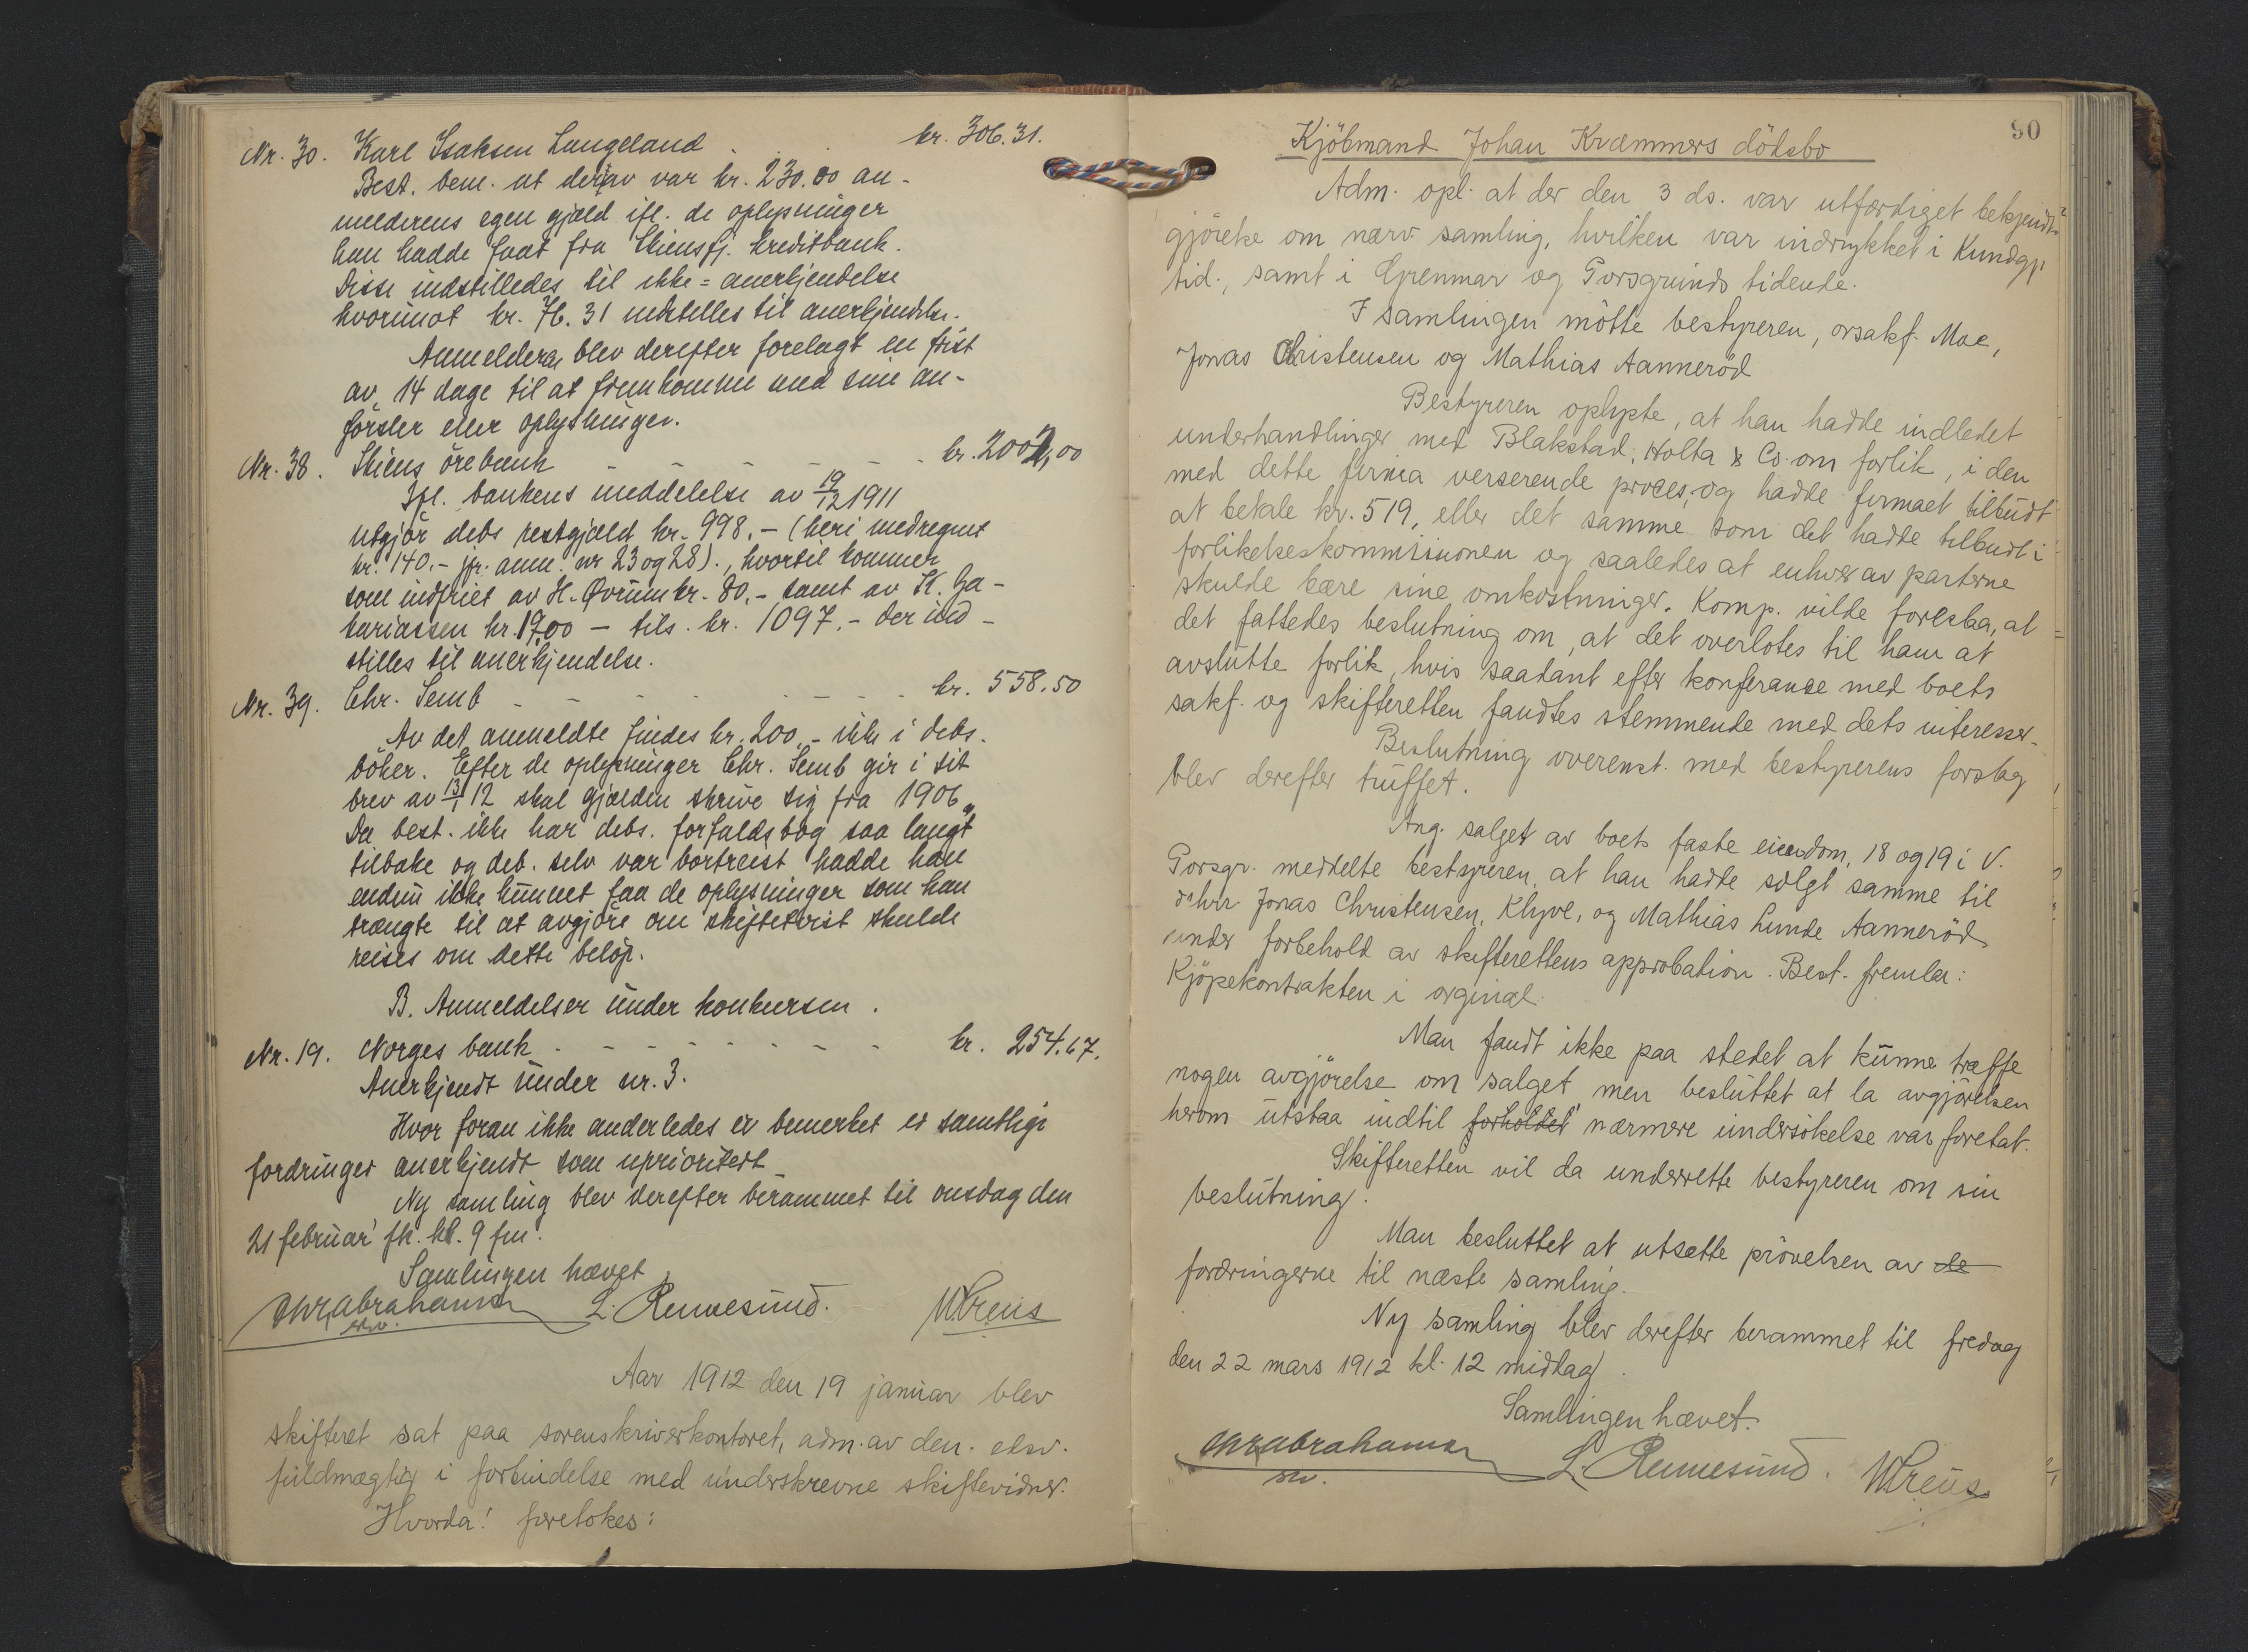 Nr. 30. Karl Isaksen Langeland kr. 306.31.
Best. bem. at derav var kr. 230.00 an-
melderens egen gjæld ifl. de oplysninger
han hadde faat fra Skiensfj. kreditbank.
Disse indstilledes til ikke=anerkjendelse
hvorimot kr. 76.31 indstilles til anerkjendelse.
Anmelderen blev derefter forelagt en frist
av 14 dage til at fremkomme med sine an-
försler eller oplysninger.
Nr. 38. Skiens örebank - - - - - - kr. 2002,00
Ifl. bankens meddelelse av 19/12 1911
utgjör debs restgjæld kr. 998.- (heri medregnet
kr. 140.- jfr. anm. nr 23 og 28)., hvortil kommer
som indfriet av H. Øvrum kr. 80.- samt av K. Za-
kariassen kr. 19,00 - tils. kr. 1097.- der ind-
stilles til anerkjendelse.
Nr. 39. Chr. Semb - - - - - - kr. 558.50
Av det anmeldte findes kr. 200.- ikke i debs.
böker. Efter de oplysninger Chr. Semb gir i sit
brev av 13/1 12 skal gjælden skrive sig fra 1906.
Da best. ikke har debs. forfaldsbog saa langt
tilbake og deb. selv var bortreist hadde han
endnu ikke kunnet faa de oplysninger som han
trængte til at avgjöre om skiftetvist skulde
reises om dette belöp.
B. Anmeldelser under konkursen.
Nr. 19. Norges bank - - - - - - - kr. 254.67.
Anerkjendt under nr. 3.
Hvor foran ikke anderledes er bemerket er samtlige
fordringer anerkjendt som uprioritert
Ny samling blev derefter berammet til onsdag den
21 februar fk. kl. 9 fm.
Samlingen hævet
Chr Abrahamsen L. Rennesund. M. Greus
Aar 1912 den 19 januar blev
skifteret sat paa sorenskriverkontoret, adm. av den. edsv.
fuldmægtig i forbindelse med underskrevne skiftevidner.
Hvorda! foretokes:
90
Kjöbmand Johan Kræmmers dödsbo
Adm. opl. at der den 3 ds. var utfærdiget bekjendt-
gjörelse om nærv. samling, hvilken var indrykket i Kundgj.
tid., samt i Grenmar og Porsgrunds tidende.
I samlingen mötte bestyreren, orsakf. Moe,
Jonas Christensen og Mathias Aanneröd
Bestyreren oplyste, at han hadde indledet
underhandlinger med Blakstad, Holta & Co. om forlik, i den
med dette firma verserende proces, og hadde firmaet tilbudt
at betale kr. 519, eller det samme som det hadde tilbudt i
forlikelseskommissionen og saaledes at enhver av parterne
skulde bære sine omkostninger. Komp. vilde foreslaa, at
det fattedes beslutning om, at det overlotes til ham at
avslutte forlik, hvis saadant efter konferanse med boets
sakf. og skifteretten fandtes stemmende med dets interesser.
Beslutning overenst. med bestyrerens forslag
blev derefter truffet.
Ang. salget av boets faste eiendom, 18 og 19 i V.
Porsgr. meddelte bestyreren, at han hadde solgt samme til
dhrr. Jonas Christensen, Klyve, og Mathias Lunde Aanneröd
under forbehold av skifterettens approbation. Best. fremla:
Kjöpekontrakten i orginal.
Man fandt ikke paa stedet at kunne træffe
nogen avgjörelse om salget men besluttet at la avgjörelsen
herom utstaa indtil forholdet nærmere undersökelse var foretat.
Skifteretten vil da underrette bestyreren om sin
beslutning.
Man besluttet at utsætte prövelsen av de
fordringerne til næste samling.
Ny samling blev derefter berammet til fredag
den 22 mars 1912 kl. 12 middag.
Samlingen hævet.
Chr Abrahamsen L. Rennesund. M. Greus